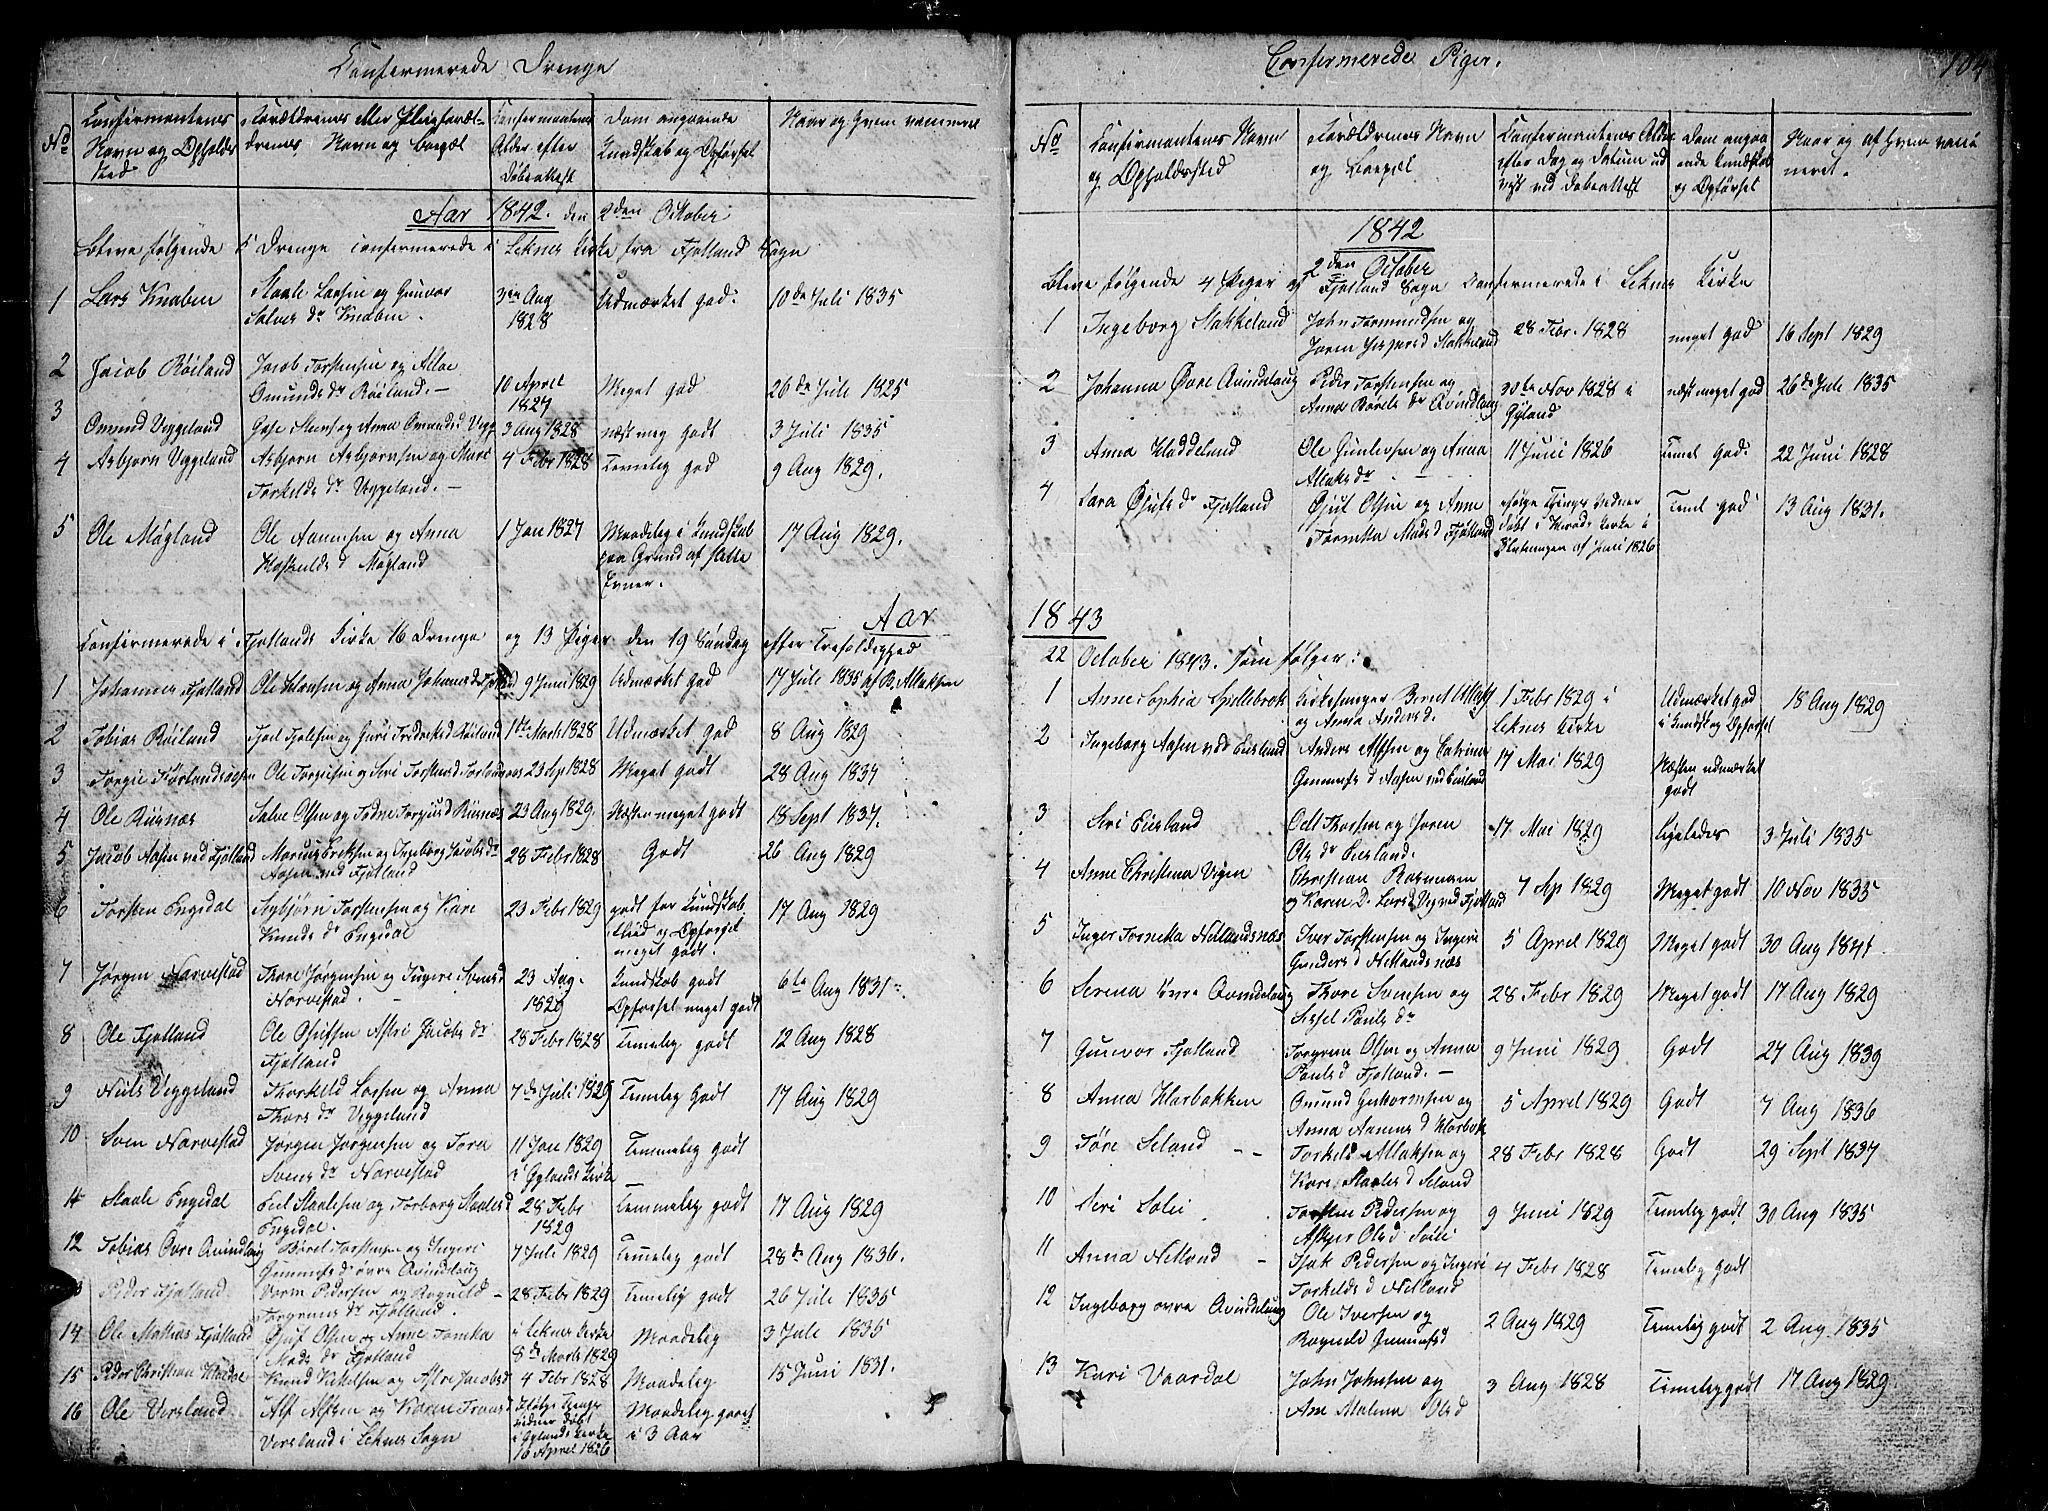 Confermerede Drenge
No
Confirmantenes Navn og Opholds Sted
Forældrenes eller Pleigforældrenes Navn og boepæl
Confermantenes Alder efter Døbeattest
Dom angaaende Kundskab og Opførsel
Naar og Hvem vaccineret
Aar 1842. den 2den October
Bleve følgende 5 Drenge confermerede i Leknes Kirke fra Fjotland Sogn
1 Lars Knaben Staale Larsen og Gunvor Salves dr Knaben. 3die Aug 1828 Udmærket god. 10de Juli 1835
2 Jacob Röiland Jacob Torstensen og Omunds dr Röiland. 10 April 1827 Meget god 26de Juli 1825
3 Omund Veggeland og Anna Omunds d Vegg 3 Aug 1828 næst meg godt 3 Juli 1835
4 Asbjørn Veggeland Asbjørn Asbjørnsen og Mari Torkelds dr Veggeland. 4 Febr 1828 Temelig god 9 Aug 1829.
5 Ole Møgland Ole Aanensen og Anna d Møgland 1 Jan 1827 Maadelig i Kundskab paa Grund af slette Evner. 17 Aug 1829.
Aar
Confermerede i Fjotlands Kirke 16 Drenge og 13 Piger den 19 Søndag efter Trefoldighed
1 Johannes Fjotland Ole Hansen og Anna Johannes d Fjotland 9 Juni 1829 Udmærket god 17 Jule 1835 af B. Allaksen
2 Tobias Röiland Fjeil Fjelsen og Guri Fredrecks d Röiland 1te Marts 1828 Udmærket god 8 Aug 1829
3 Torgie Førlandsaasen Ole Torgiesen og Seri Torstens d 23 Sep 1828 Meget godt 28 Aug 1834
4 Ole Risnæs Salve Olsen og Tedne Torgius d Risnæs 23 Aug 1829. Næsten meget godt 18 Sept 1837.
5 Jacob Aasen ved Fjotland Marcus Eriksen og Ingeborg Jacobs dr Aasen ved Fjotland 28 Febr 1828 Godt 26 Aug 1829
6 Torsten Engedal Asbjørn Torstensen og Kare Knuds dr Engedal 23 Febr 1829 godt for Kundskab, Flied og Opførsel meget godt. 17 Aug 1829
7 Jørgen Narvestad Thore Jørgensen og Ingeri Svens d Narvestad. 23 Aug. 1829 Kundskab godt Opførsel meget godt 6te Aug 1831
8 Ole Fjotland Ole Olufsen Astri Jacobs dr Fjotland 28 Febr 1828 Temelig godt 12 Aug 1828
9 Niels Veggeland Thorkeld Larsen og Anna Thors dr Veggeland 7de Juli 1829 Temelig godt 17 Aug 1829
10 Sven Narvestad Jørgen Jørgensen og Tora Svens dr Narvestad 11 Jan 1829 i Gylands Kirke Temmelig godt
11 Staale Engedal Eeil Staalesen og Torborg Staales d Engedal. 28 Febr 1829 Temmelig godt 17 Aug 1829
12 Tobias Övre Qvindlaug Börel Torstensen og Ingeri Gummufs d övre Qvindlaug 7 Juli 1829 Temelig godt 28de Aug 1836.
13 Peder Fjotland Verin Pedersen og Ragneld Torgrems dr Fjotland. 28 Febr. 1829 Temelig godt 26 Jule 1835
14 Ole Mathias Fjotland Gjut Olsen og Anne Tomika Mads dr Fjotland i Leknes Kirke 8de Marts 1829 Maadelig 3 Jule 1835
15 Peder Christian Knud Kittelsen og Astre Jacobs d 4 Febr 1828 Maadeleg 15 Juni 1831.
16 Ole Versland Alf Alfsen og Karen Trons d Versland i Leknes Sogn Ifølge Tings vidner døbt i Gylands Kirke 16 April 1826 Maadeleg gaaet i 3 Aar
Confermerede Piger.
104
No
Confermantenes Navn og Opholdssted
Forældrenes Navn og Boepæl
Confermantenes Alder efter Dag og Datum ud vist ved Døbeattest
Dom angaaende Kundskab og Opførsel
Naar og af Hvem vaccineret.
1842
2den October
Bleve følgende 4 Piger af Fjotland Sogn Confermerede i Leknes Kirke
1 Ingeborg Stakkeland John Tormundsen og Joren Jespers d Stakkeland 28 Febr. 1828 meget god 16 Sept 1829
2 Johanna Øvre Qvindlaug Peder Torstensen og Anna Börels dr Qvindlaug 30te Nov 1828 i Gyland næst meget god 26de Jule 1835
3 Anna Haddeland Ole Gunlefsen og Anna Allaks dr 11 Juni 1826 Temel god. 22 Juni 1828
4 Sara Gjuts dr Fjotland Gjut Olsen og Anne Tomika Mads d Fjotland ifølge Things Vedner døbt i Kirke i Slutningen af Juni 1826 Temel god 13 Aug 1831.
1843
22 October 1843. som følger:
1 Anne Sophia Spillebrok Kirkesanger Bernt Allaks og Anna Anders d. 1 Febr 1829 i Leknes Kirke Udmærket god i Kundsk og Opførsel 18 Aug 1829
2 Ingeborg Aasen ved Eiesland Anders Alfsen og Catrina Gummufs d Aasen ved Eiesland 17 Mai 1829 Næsten udmærket godt
3 Seri Eiesland Odt Thorsen og Joren Ols dr Eiesland. 17 Mai 1829 Ligeledes 3 Juli 1835
4 Anne Christina Vigen Christian Rasmusen og Karen D. Lars d ved Fjotland 7 Sep 1829 Meget godt 10 Nov 1835
5 Inger Tomeka Netlandsnæs Iver Torstensen og Ingeri Gunders d Netlandsnæs 5 Aprel 1829 Meget godt 30 Aug 1841.
6 Serena övre Qvindlaug Thore Svensen og Sissel Pauls dr 28 Febr 1829 Meget godt 17 Aug 1829
7 Gunvor Fjotland Torgrem Olsen og Anna Pauls d Fjotland. 9 Juni 1829 Godt 27 Aug 1839
8 Anna Harbakken Omund Guttormsen og Anna Aanens d Harbak 5 Aprel 1829 Godt 7 Aug 1836
9 Tøre Seland Torkel Allaksen og Kare Staales d Seland 28 Febr 1828 Godt 29 Sept 1837
10 Seri Solei Torsten Pedersen og Asksjer Ols d Solei 9 Juni 1829 Temeleg godt 30 Aug 1835
11 Anna Netland Isak Pedersen og Ingeri Torkelds d Netland 4 Febr 1828 Temeleg godt
12 Ingeborg övre Qvindlaug Ole Iversen og Ragneld Gummufs d 2 Aug 1829 Temeleg godt 2 Aug. 1835
13 Kari Vaardal John Johnsen og Ane Malena Ols d 3 Aug 1828 Temeleg godt 17 Aug 1829.